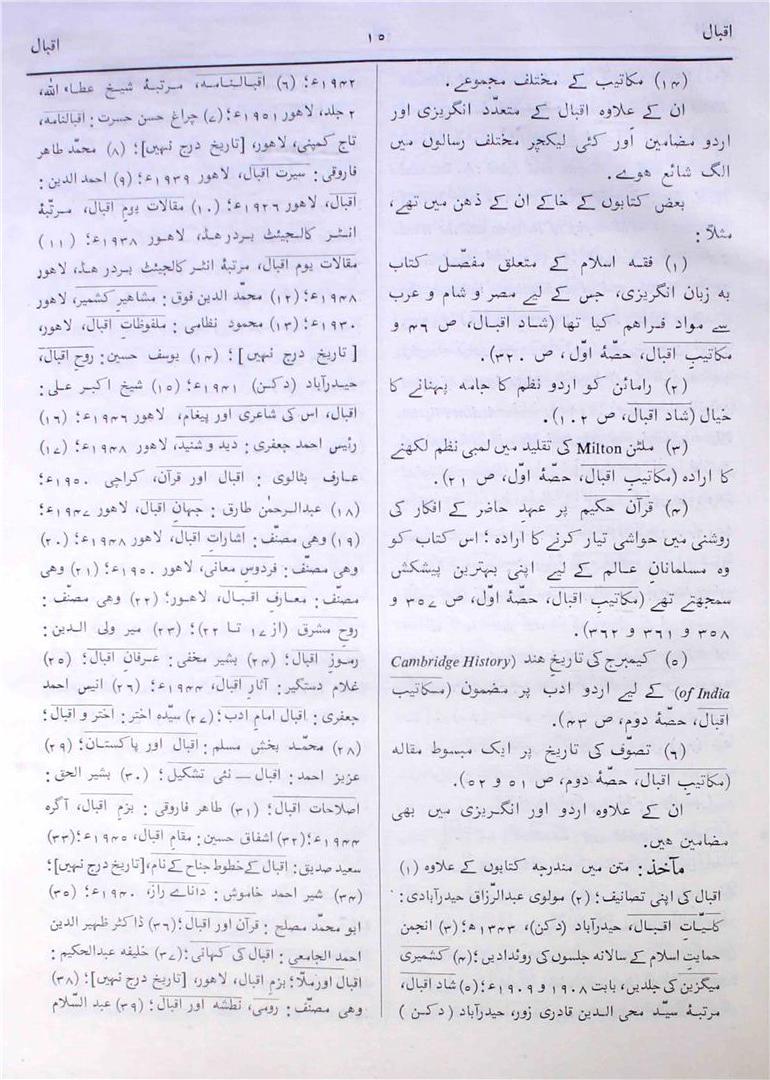 اقبال
۱۵
اقبال
(۱۴) مکاتیب کے مختلف مجموعے۔
ان کے علاوہ اقبال کے متعدّد انگریزی اور
اردو مضامین اَور کئی لیکچر مختلف رسالوں میں
الگ شائع ہوے۔
بعض کتابوں کے خاکے ان کے ذہن میں تھے،
مثلاً :
(۱) فقہ اسلام کے متعلق مفصّل کتاب
بہ زبان انگریزی، جس کے لیے مصر و شام و عرب
سے مواد فراہم کیا تھا (شاد اقبال، ص ۴۶ و
مکاتیبِ اقبال، حصّۂ اوّل، ص ۳۲۰)۔
(۲) رامائن کو اردو نظم کا جامہ پہنانے کا
خیال (شاد اقبال، ص ۱۰۲)۔
(۳) ملٹن Milton کی تقلید میں لمبی نظم لکھنے
کا ارادہ (مکاتیبِ اقبال، حصّۂ اوّل، ص ۲۱)۔
(۴) قرآن حکیم پر عہدِ حاضر کے افکار کی
روشنی میں حواشی تیار کرنے کا ارادہ ؛ اس کتاب کو
وہ مسلمانانِ عالم کے لیے اپنی بہترین پیشکش
سمجھتے تھے (مکاتیبِ اقبال، حصّۂ اوّل، ص ۳۵۷ و
۳۵۸ و ۳۶۱ و ۳۶۲)۔
(۵) کیمبرج کی تاریخِ ہند (Cambridge History
of India) کے لیے اردو ادب پر مضمون (مکاتیب
اقبال، حصّۂ دوم، ص ۴۳)۔
(۶) تصوّف کی تاریخ پر ایک مبسوط مقالہ
(مکاتیبِ اقبال، حصّۂ دوم، ص ۵۱ و ۵۲)۔
ان کے علاوہ اردو اور انگریزی میں بھی
مضامین ہیں۔
مآخذ: متن میں مندرجہ کتابوں کے علاوہ (۱)
اقبال کی اپنی تصانیف؛ (۲) مولوی عبدالرزّاق حیدرآبادی:
کلیّاتِ اقبال، حیدرآباد (دکن)، ۱۳۴۳ھ؛ (۳) انجمن
حمایتِ اسلام کے سالانہ جلسوں کی روئدادیں؛ (۴) کشمیری
میگزین کی جلدیں، بابت ۱۹۰۸ و ۱۹۰۹ء؛ (۵) شاد اقبال،
مرتبۂ سیّد محی الدین قادری زور، حیدرآباد (دکن)
۱۹۴۲ء؛ (۶) اقبالنامہ، مرتبۂ شیخ عطاء اللہ،
۲ جلد، لاھور ۱۹۵۱ء؛ (۷) چراغ حسن حسرت : اقبالنامہ،
تاج کمپنی، لاھور، [تاریخ درج نہیں]؛ (۸) محمّد طاہر
فاروقی : سیرت اقبال، لاھور ۱۹۳۹ء؛ (۹) احمد الدین :
اقبال، لاھور ۱۹۲۶ء؛ (۱۰) مقالات یوم اقبال، مرتّبۂ
انٹر کالجیئٹ بردر ھڈ، لاھور ۱۹۳۸ء؛ (۱۱)
مقالات یوم اقبال، مرتبۂ انٹر کالجیئٹ بردر ھڈ، لاھور
۱۹۴۸ء؛ (۱۲) محمّد الدین فوق : مشاھیرِ کشمیر، لاھور
۱۹۳۰ء؛ (۱۳) محمود نظامی : ملفوظاتِ اقبال، لاھور،
[تاریخ درج نہیں]؛ (۱۴) یوسف حسین: روحِ اقبال،
حیدرآباد (دکن) ۱۹۴۱ء؛ (۱۵) شیخ اکبر علی :
اقبال، اس کی شاعری اور پیغام، لاھور ۱۹۴۶ء؛ (۱۶)
رئیس احمد جعفری : دید و شنید، لاھور ۱۹۴۸ء؛ (۱۷)
عارف بٹالوی : اقبال اور قرآن، کراچی ۱۹۵۰ء؛
(۱۸) عبدالرحمٰن طارق : جہانِ اقبال، لاھور ۱۹۴۷ء؛
(۱۹) وھی مصنّف : اشاراتِ اقبال، لاھور ۱۹۴۸ء؛ (۲۰)
وھی مصنّف : فردوسِ معانی، لاھور ۱۹۵۰ء؛ (۲۱) وھی
مصنّف : معارفِ اقبال، لاھور؛ (۲۲) وھی مصنّف :
روحِ مشرق (از ۱۷ تا ۲۲)؛ (۲۳) میر ولی الدین :
رموزِ اقبال؛ (۲۴) بشیر مخفی : عرفانِ اقبال؛ (۲۵)
غلام دستگیر : آثارِ اقبال، ۱۹۴۴ء؛ (۲۶) انیس احمد
جعفری : اقبال امامِ ادب؛ (۲۷) سیّدہ اختر : اختر و اقبال؛
(۲۸) محمّد بخش مسلم : اقبال اور پاکستان؛ (۲۹)
عزیز احمد : اقبال — نئی تشکیل؛ (۳۰) بشیر الحق :
اصلاحات اقبال؛ (۳۱) طاہر فاروقی : بزمِ اقبال، آگرہ
۱۹۴۴ء؛ (۳۲) اشفاق حسین : مقامِ اقبال، ۱۹۴۵ء؛ (۳۳)
سعید صدیق : اقبال کے خطوط جناح کے نام، [تاریخ درج نہیں]؛
(۳۴) شیر احمد خاموش : داناے راز، ۱۹۴۰ء؛ (۳۵)
ابو محمّد مصلح : قرآن اور اقبال؛ (۳۶) ڈاکٹر ظہیر الدین
احمد الجامعی : اقبال کی کہانی؛ (۳۷) خلیفہ عبدالحکیم :
اقبال اور ملا؛ بزمِ اقبال، لاھور، [تاریخ درج نہیں]؛ (۳۸)
وھی مصنّف : رومی، نطشہ اور اقبال؛ (۳۹) عبد السّلام